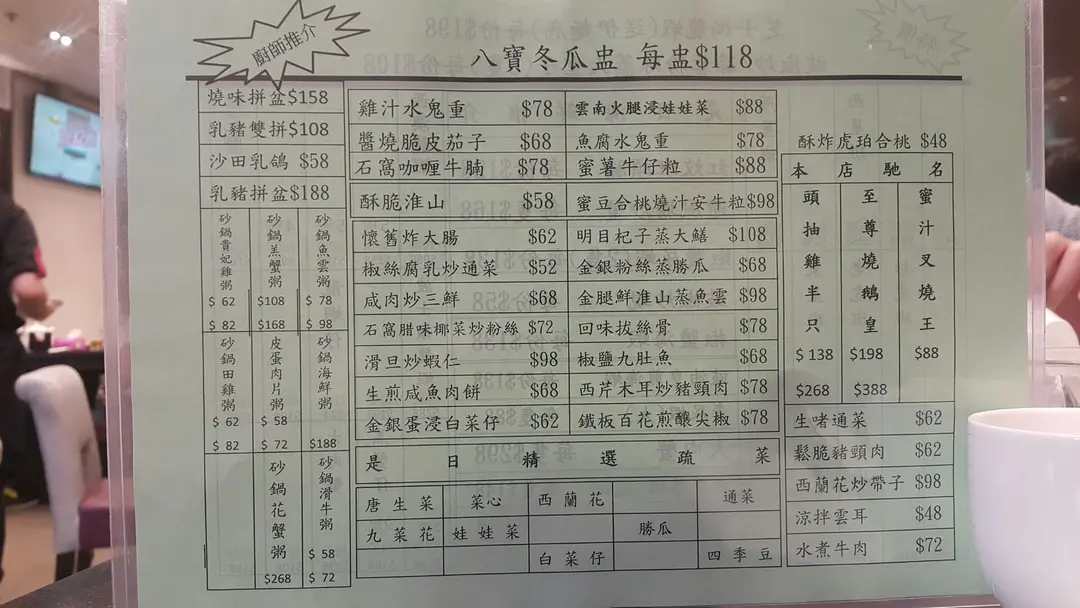 廚師推介
八寶冬瓜盅 每盅$118
燒味拼盆$158
乳豬雙拼$108
沙田乳鴿 $58
乳豬拼盆$188
砂鍋貴妃雞粥 $ 62 $ 82
砂鍋羔蟹粥 $108 $168
砂鍋魚雲粥 $ 78 $ 98
砂鍋田雞粥 $ 62 $ 82
皮蛋肉片粥 $ 58 $ 72
砂鍋海鮮粥 $188
砂鍋花蟹粥 $268
砂鍋滑牛粥 $ 58 $ 72
雞汁水鬼重 $78
雲南火腿浸娃娃菜 $88
醬燒脆皮茄子 $68
魚腐水鬼重 $78
石窩咖喱牛腩 $78
蜜薯牛仔粒 $88
酥脆淮山 $58
蜜豆合桃燒汁安牛粒$98
懷舊炸大腸 $62
明目杞子蒸大鱔 $108
椒絲腐乳炒通菜 $52
金銀粉絲蒸勝瓜 $68
咸肉炒三鮮 $68
金腿鮮淮山蒸魚雲 $98
石窩腊味椰菜炒粉絲 $72
回味拔絲骨 $78
滑旦炒蝦仁 $98
椒鹽九肚魚 $68
生煎咸魚肉餅 $68
西芹木耳炒豬頸肉 $78
金銀蛋浸白菜仔 $62
鐵板百花煎釀尖椒 $78
是日精選疏菜
唐生菜 菜心 西蘭花 通菜
九菜花 娃娃菜 勝瓜
白菜仔 四季豆
酥炸虎珀合桃 $48
本店馳名
頭抽雞半只 $138 $268
至尊燒鵝皇 $198 $388
蜜汁叉燒王 $88
生啫通菜 $62
鬆脆豬頸肉 $62
西蘭花炒帶子 $98
涼拌雲耳 $48
水煮牛肉 $72